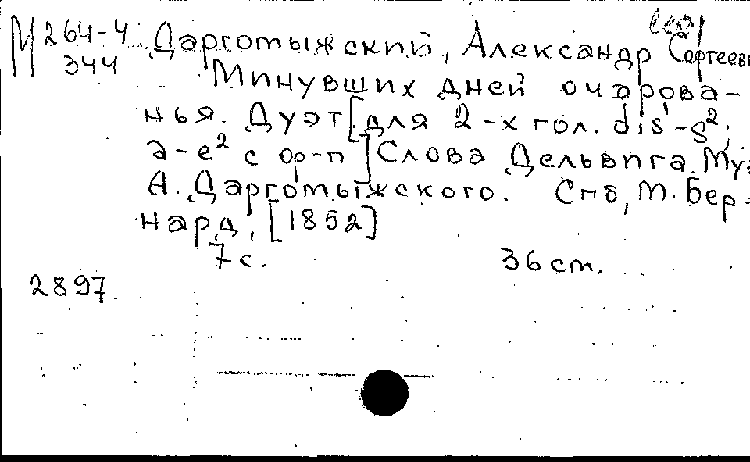 М 264-4 Даргомыжский, Александр Сергеев
344 Минувших дней очарова-
нья. Дуэт [для 2-х гол. dis¹-g²,
a-e² с ф-п] Слова Дельвига. Му
А. Даргомыжского. Спб, М. Бер-
нард, [1852]
7 с. 36 см.
2897